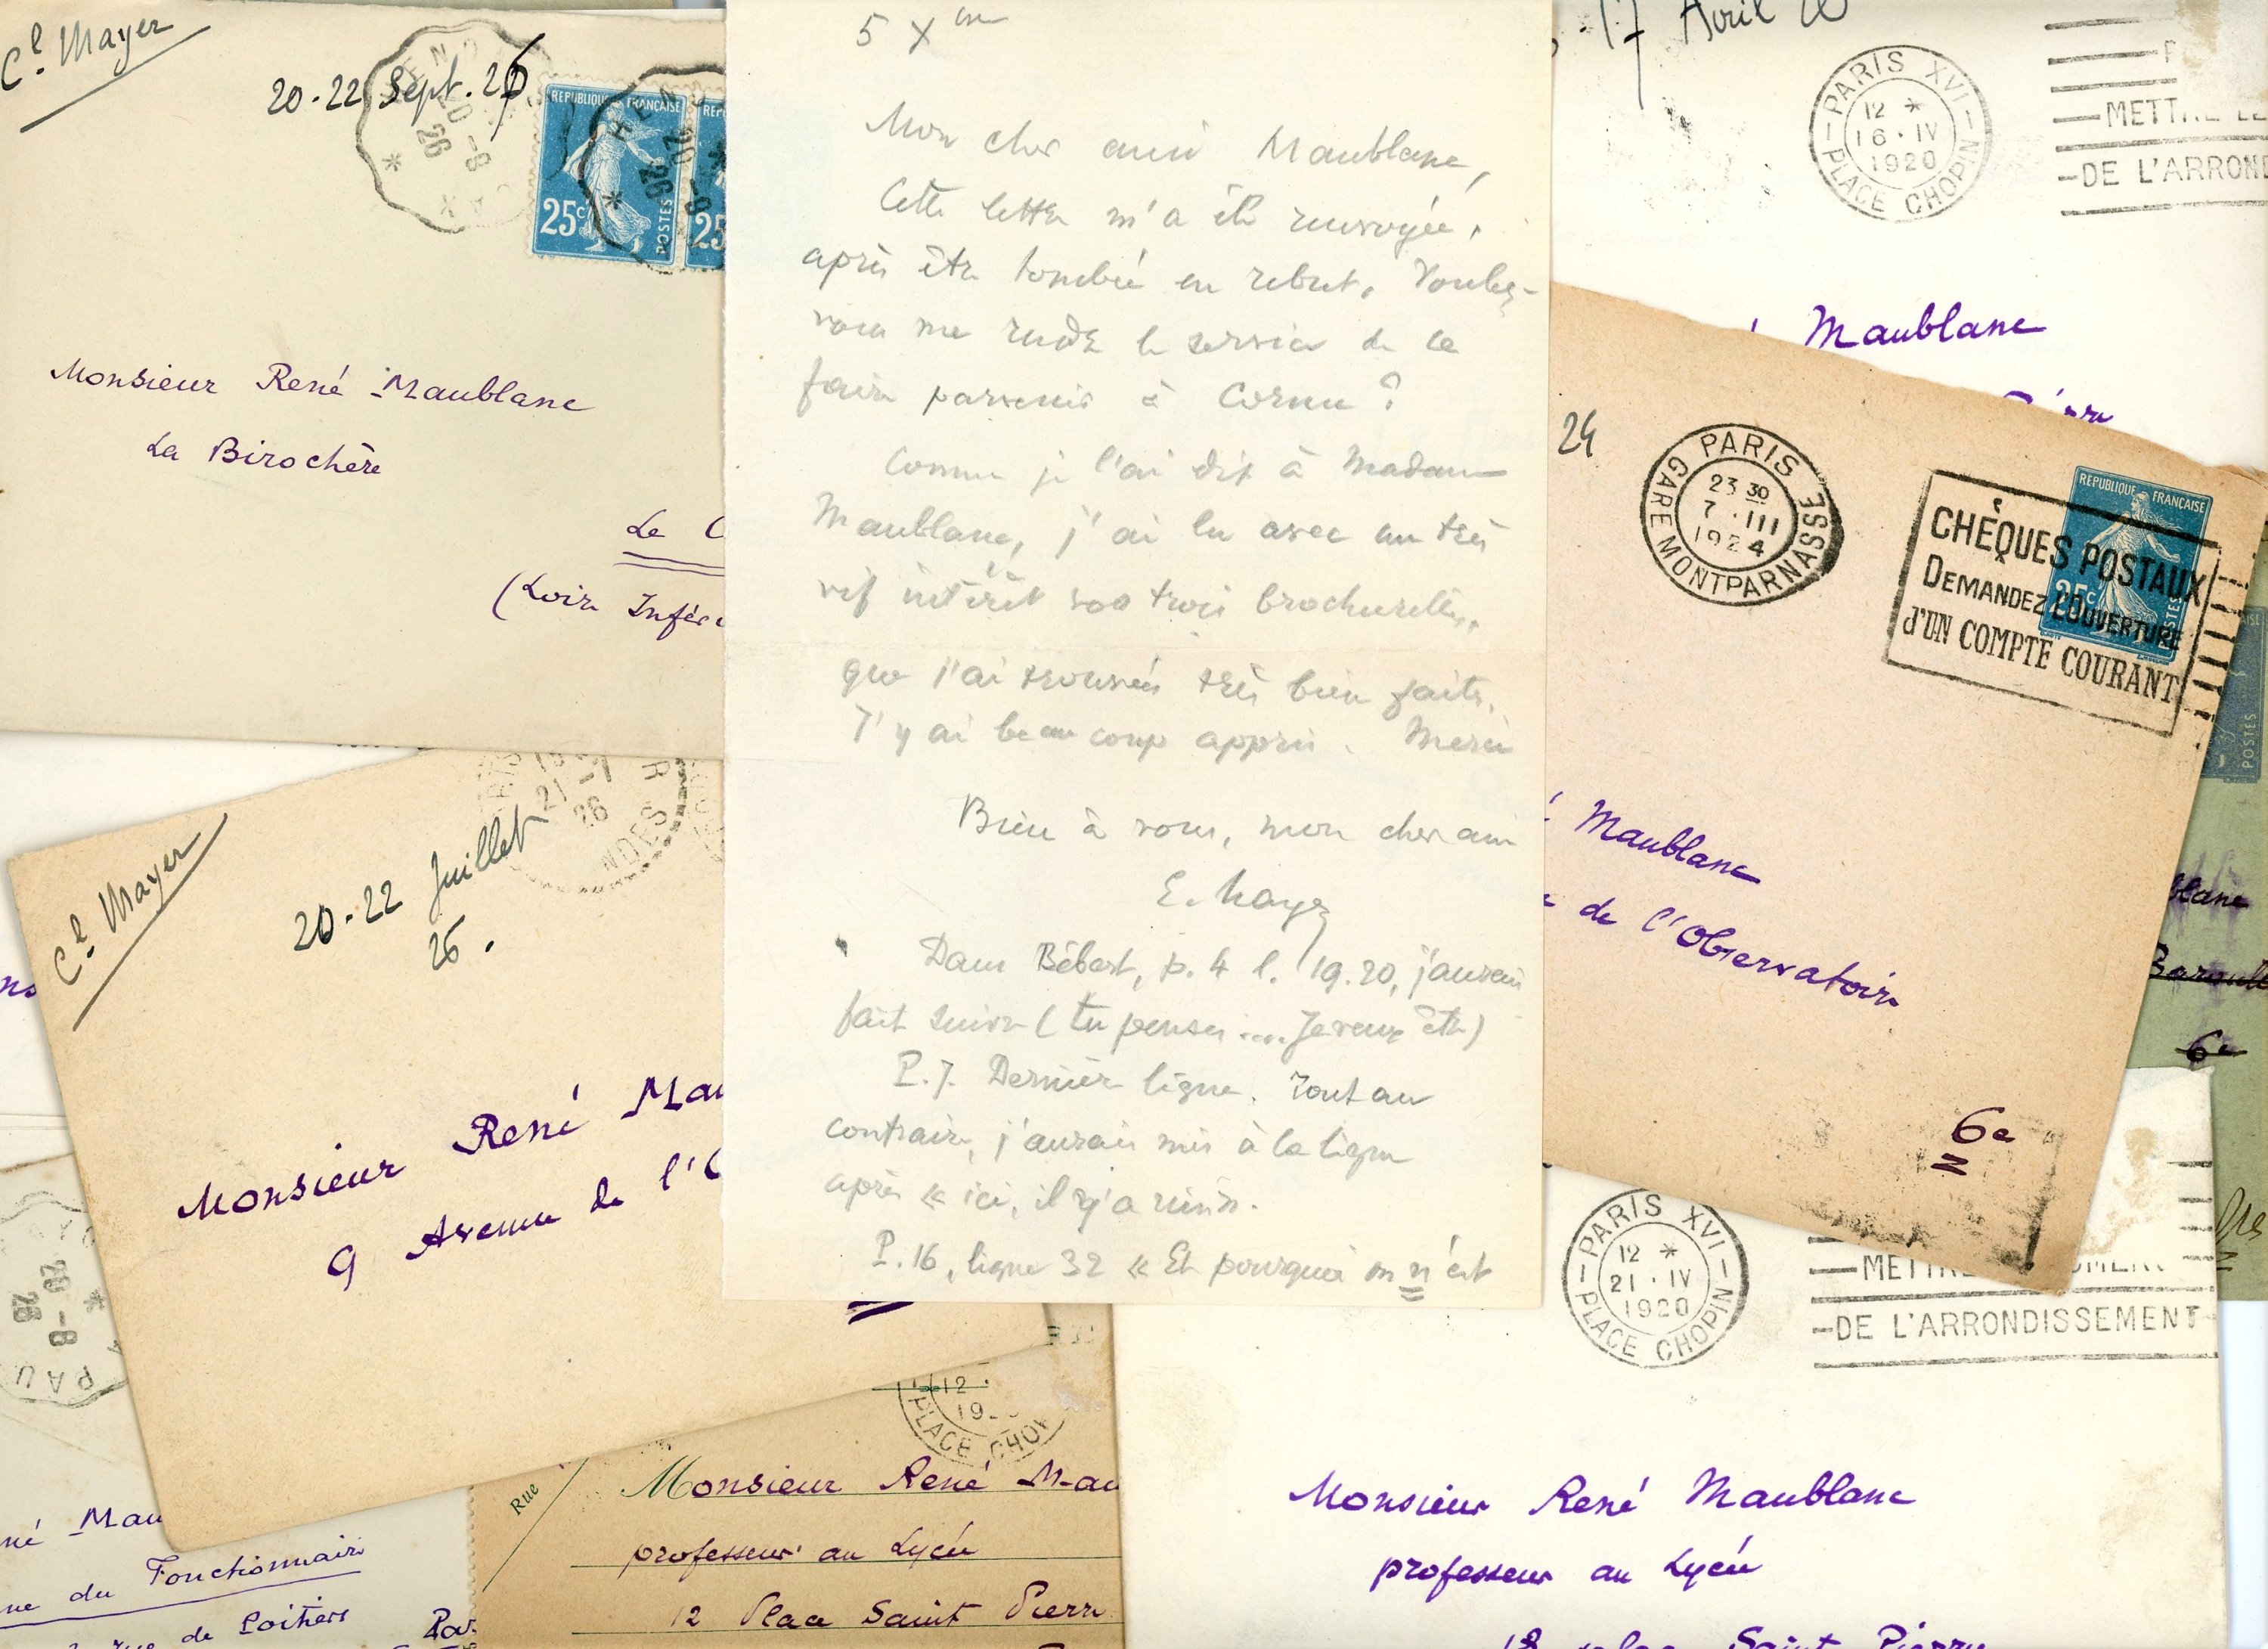 Cl. Mayer
20-22 Sept. 26
RÉPUBLIQUE FRANÇAISE
25c
POSTES
Monsieur René Maublanc
La Birochère
Le C
(Loire Infér
5 Xbre
Mon cher ami Maublanc,
Cette lettre m'a été renvoyée,
après être tombée en rebut. Voulez-
vous me rendre le service de la
faire parvenir à Cornu ?
Comme je l'ai dit à Madame
Maublanc, j'ai lu avec un très
vif intérêt vos trois brochurettes,
que j'ai trouvées très bien faites.
J'y ai beaucoup appris. Merci
Bien à vous, mon cher ami
E. Mayer
Dans Bébert, p. 4 l. 19.20, j'aurais
fait suivre (tu penses .... Je veux être)
P. 7. Dernière ligne. Tout au
contraire, j'aurais mis à la ligne
après « ici, il n'y a
P. 16, ligne 32 « Et pourquoi on n'est
17 Avril 20
PARIS XVI
12 *
16 · IV
1920
PLACE CHOPIN
METT
DE L'ARROND
Maublanc
24
PARIS
23 30
7 · III
1924
GARE MONTPARNASSE
RÉPUBLIQUE FRANÇAISE
25c
CHÈQUES POSTAUX
DEMANDEZ L'OUVERTURE
D'UN COMPTE COURANT
POSTES
Maublanc
de l'Observatoire
6e
blanc
6e
Cl. Mayer
20-22 Juillet
26.
21-7
26
Monsieur René Mau
9 Avenue de l'O
20-8
26
PAU
né Mau
du Fonctionnaire
rue de Poitiers
12.
19
PLACE CHOPI
Rue
Monsieur René Mau
professeur au Lycée
12 Place Saint Pierre
PARIS XVI
12 *
21 · IV
1920
PLACE CHOPIN
METTRE
DE L'ARRONDISSEMENT
Monsieur René Maublanc
professeur au Lycée
12 place Saint Pierre